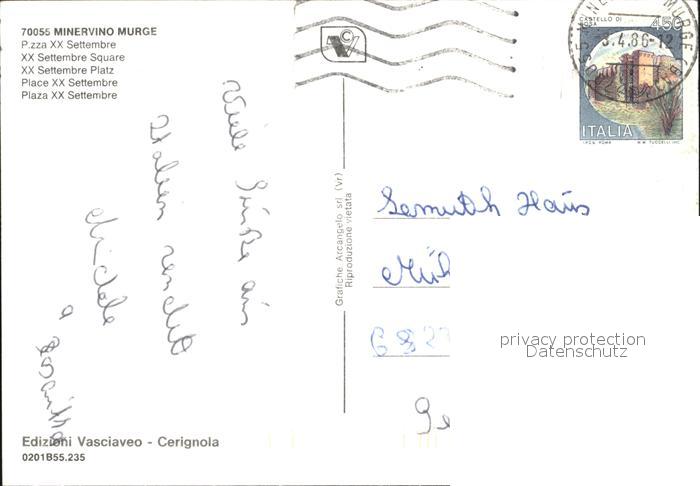 70055 MINERVINO MURGE
P.zza XX Settembre
XX Settembre Square
XX Settembre Platz
Place XX Settembre
Plaza XX Settembre
CASTELLO DI
450
3.4.86-12
ITALIA
I.P.Z.S. ROMA
Viele Grüße aus
Italien
Michele
Grafiche Arcangelo srl (Vr)
Riproduzione vietata
Haus
privacy protection
Datenschutz
Edizioni Vasciaveo - Cerignola
0201B55.235